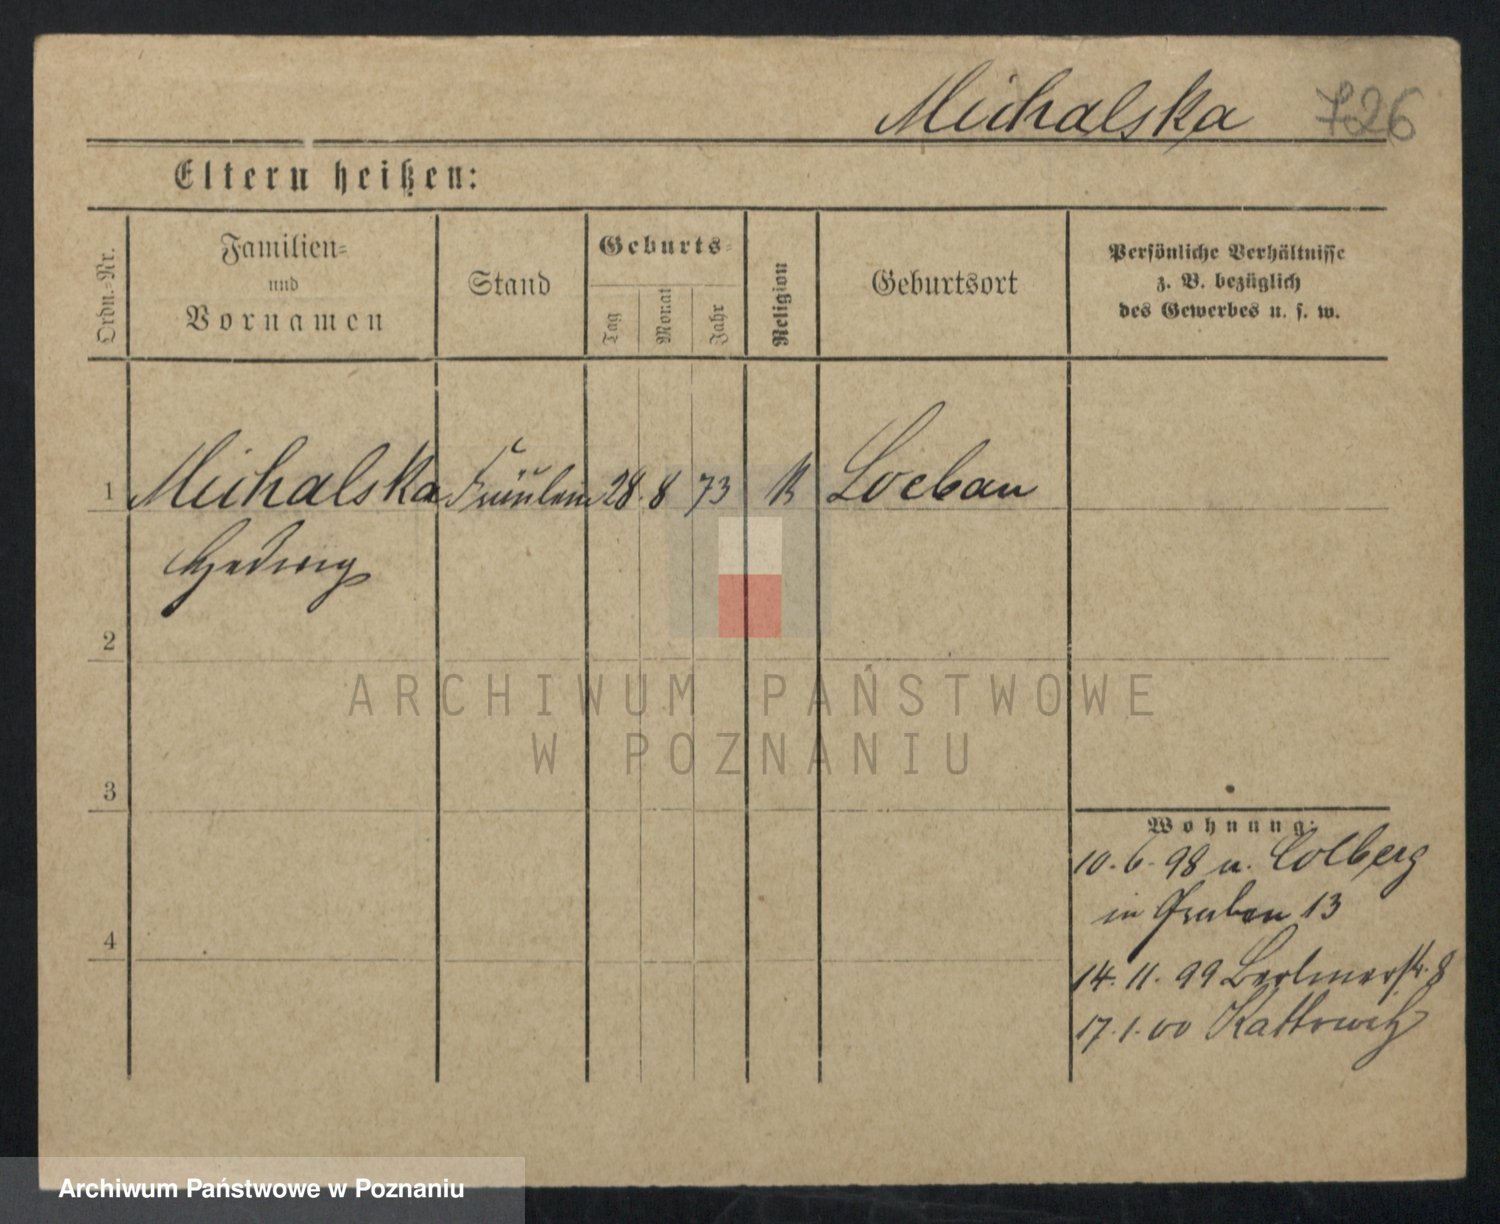 Michalska 726
Eltern heißen:
Ordn.-Nr.
Familien-
und
Vornamen
Stand
Geburts-
Tag
Monat
Jahr
Religion
Geburtsort
Persönliche Verhältnisse
z. B. bezüglich
des Gewerbes u. s. w.
1 Michalska Fräulein 28. 8 73 K Loebau
Hedwig
2
3
4
Wohnung:
10. 6. 98 u. Colberg
in Graben 13
14. 11. 99 Berlinerstr. 8
17. 1. 00 Kattowitz
ARCHIWUM PAŃSTWOWE
W POZNANIU
Archiwum Państwowe w Poznaniu